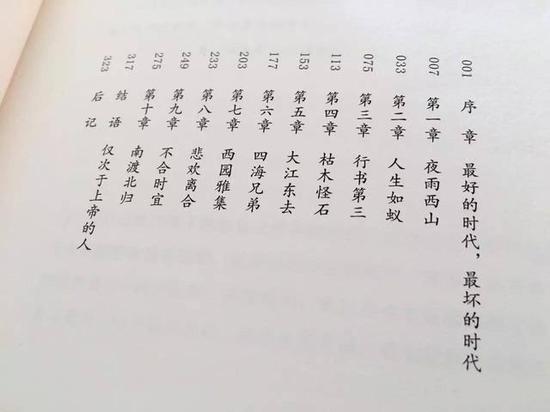 001 序 章 最好的时代，最坏的时代
007 第一章 夜雨西山
033 第二章 人生如蚁
075 第三章 行书第三
113 第四章 枯木怪石
153 第五章 大江东去
177 第六章 四海兄弟
203 第七章 西园雅集
233 第八章 悲欢离合
249 第九章 不合时宜
275 第十章 南渡北归
317 结 语 仅次于上帝的人
323 后 记